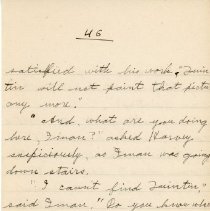 46
satisfied with his work. Quin-
tin will not paint that pictu
any more."
"And, what are you doing
here, Iman?" asked Harvey,
suspiciously, as Iman was going
down stairs.
"I can't find Quintin"
said Iman. "Do you know wher